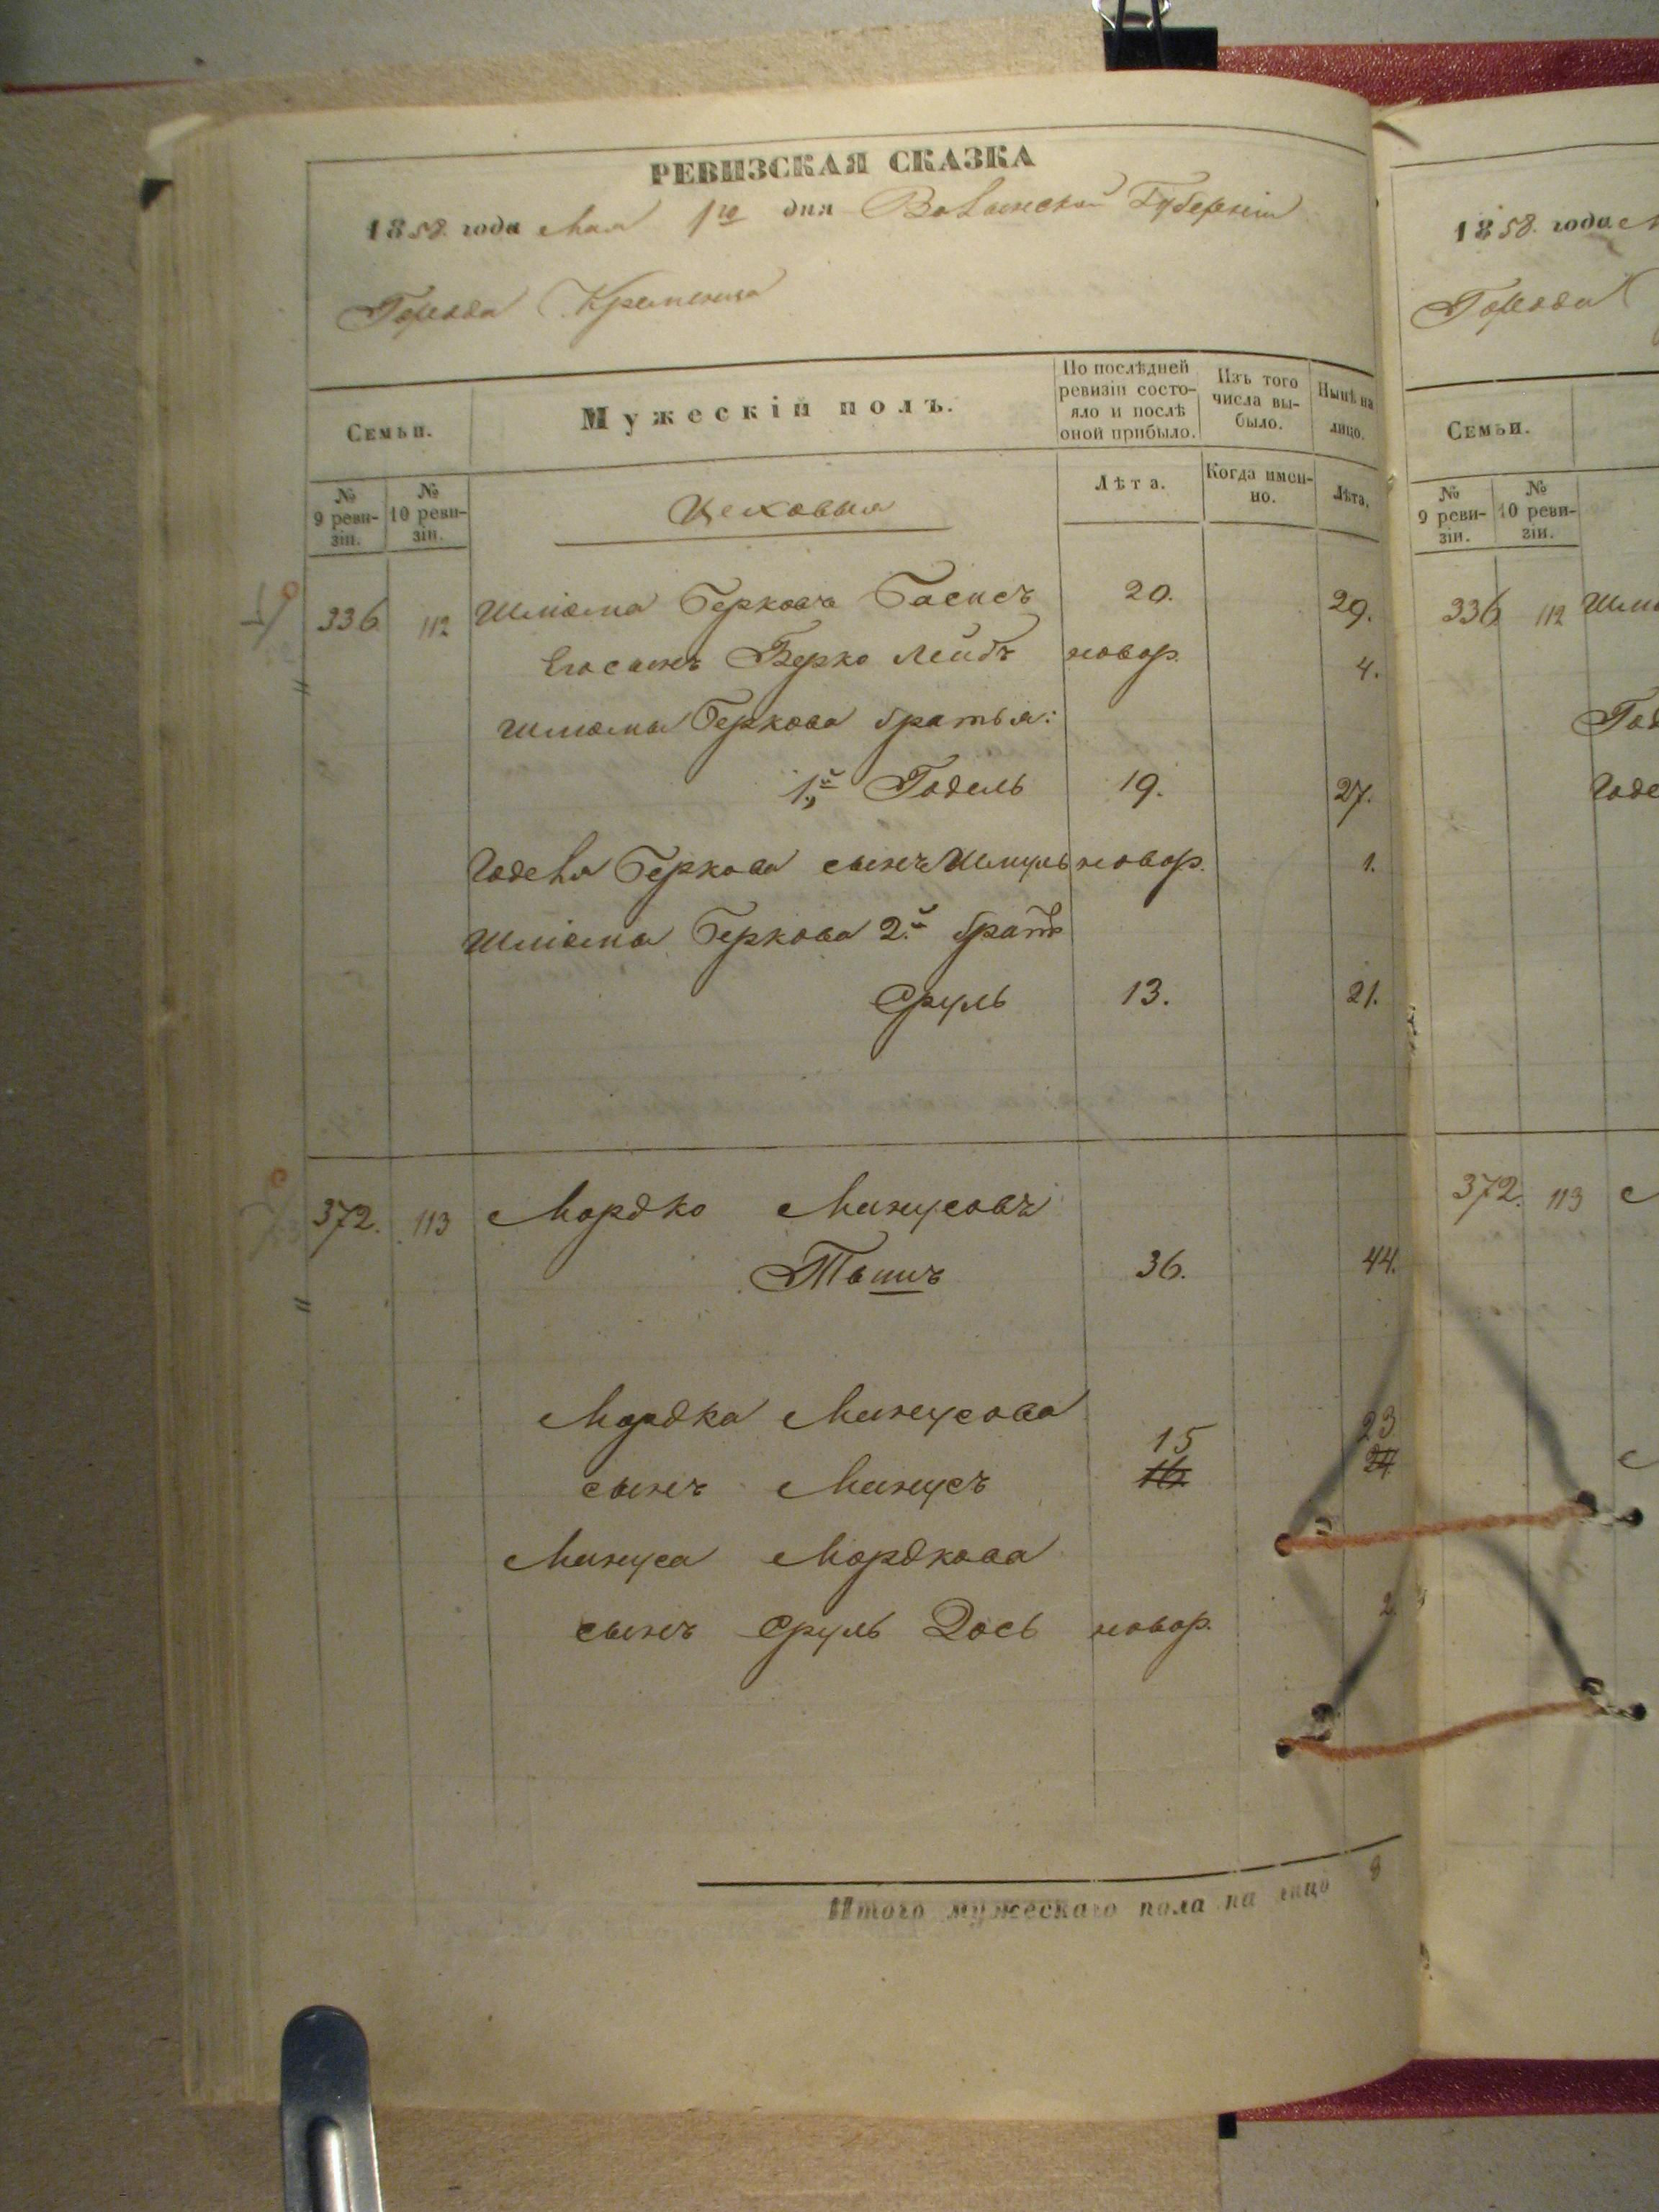 РЕВИЗСКАЯ СКАЗКА
1858. года Мая 1го дня Волынской Губерніи
Города Кременца
Семьи.
Мужескій полъ.
По послѣдней ревизіи состо-
яло и послѣ
оной прибыло.
Изъ того
числа вы-
было.
Нынѣ на
лицо.
№
9 реви-
зіи.
№
10 реви-
зіи.
Цеховыя
Лѣта.
Когда имен-
но.
Лѣта.
336 112 Шліома Берковъ Басисъ 20. 29.
Его сынъ Берко Лейбъ новор. 4.
Шліомы Беркова братья:
1й Годель 19. 27.
Годеля Беркова сынъ Шмуль новор. 1.
Шліомы Беркова 2й братъ
Сруль 13. 21.
372. 113 Мордко Манусовъ
36. 44.
Мордка Манусова
15 23
сынъ Манусъ 16 24
Мануса Мордкова
сынъ Сруль Дось новор. 2
Итого мужескаго пола на лицо 8
1858. года М
Города
Семьи.
№
9 реви-
зіи.
№
10 реви-
зіи.
336 112 Шлі
Год
Годе
372. 113 М